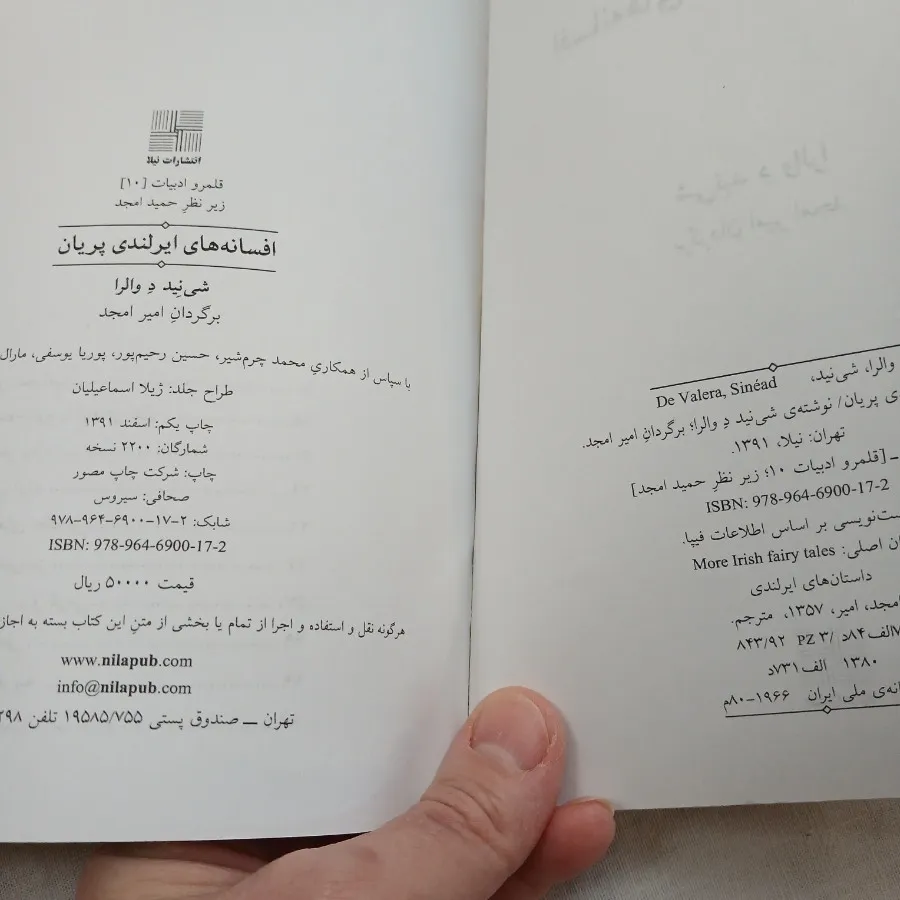 De Valera, Sinéad والرا، شی‌نید،
ی پریان/ نوشته‌ی شی‌نید دِ والرا؛ برگردانِ امیر امجد.
تهران: نیلا، ۱۳۹۱.
ـ [قلمرو ادبیات ۱۰؛ زیر نظرِ حمید امجد]
ISBN: 978-964-6900-17-2
ست‌نویسی بر اساس اطلاعات فیپا.
ان اصلی: More Irish fairy tales
داستان‌های ایرلندی
امجد، امیر، ۱۳۵۷، مترجم.
الف۸۴د / PZ ۳ ۸۴۳/۹۲
۱۳۸۰ الف۷۳۱د
انه‌ی ملی ایران ۱۹۶۶-۸۰م
انتشارات نیلا
قلمرو ادبیات [۱۰]
زیر نظرِ حمید امجد
افسانه‌های ایرلندی پریان
شی‌نِید دِ والرا
برگردانِ امیر امجد
با سپاس از همکاریِ محمد چرم‌شیر، حسین رحیم‌پور، پوریا یوسفی، مارال
طراح جلد: ژیلا اسماعیلیان
چاپ یکم: اسفند ۱۳۹۱
شمارگان: ۲۲۰۰ نسخه
چاپ: شرکت چاپ مصور
صحافی: سیروس
شابک: ۲-۱۷-۶۹۰۰-۹۶۴-۹۷۸
ISBN: 978-964-6900-17-2
قیمت ۵۰۰۰۰ ریال
هرگونه نقل و استفاده و اجرا از تمام یا بخشی از متنِ این کتاب بسته به اجاز
www.nilapub.com
info@nilapub.com
تهران ــ صندوق پستی ۱۹۵۸۵/۷۵۵ تلفن ۲۹۸